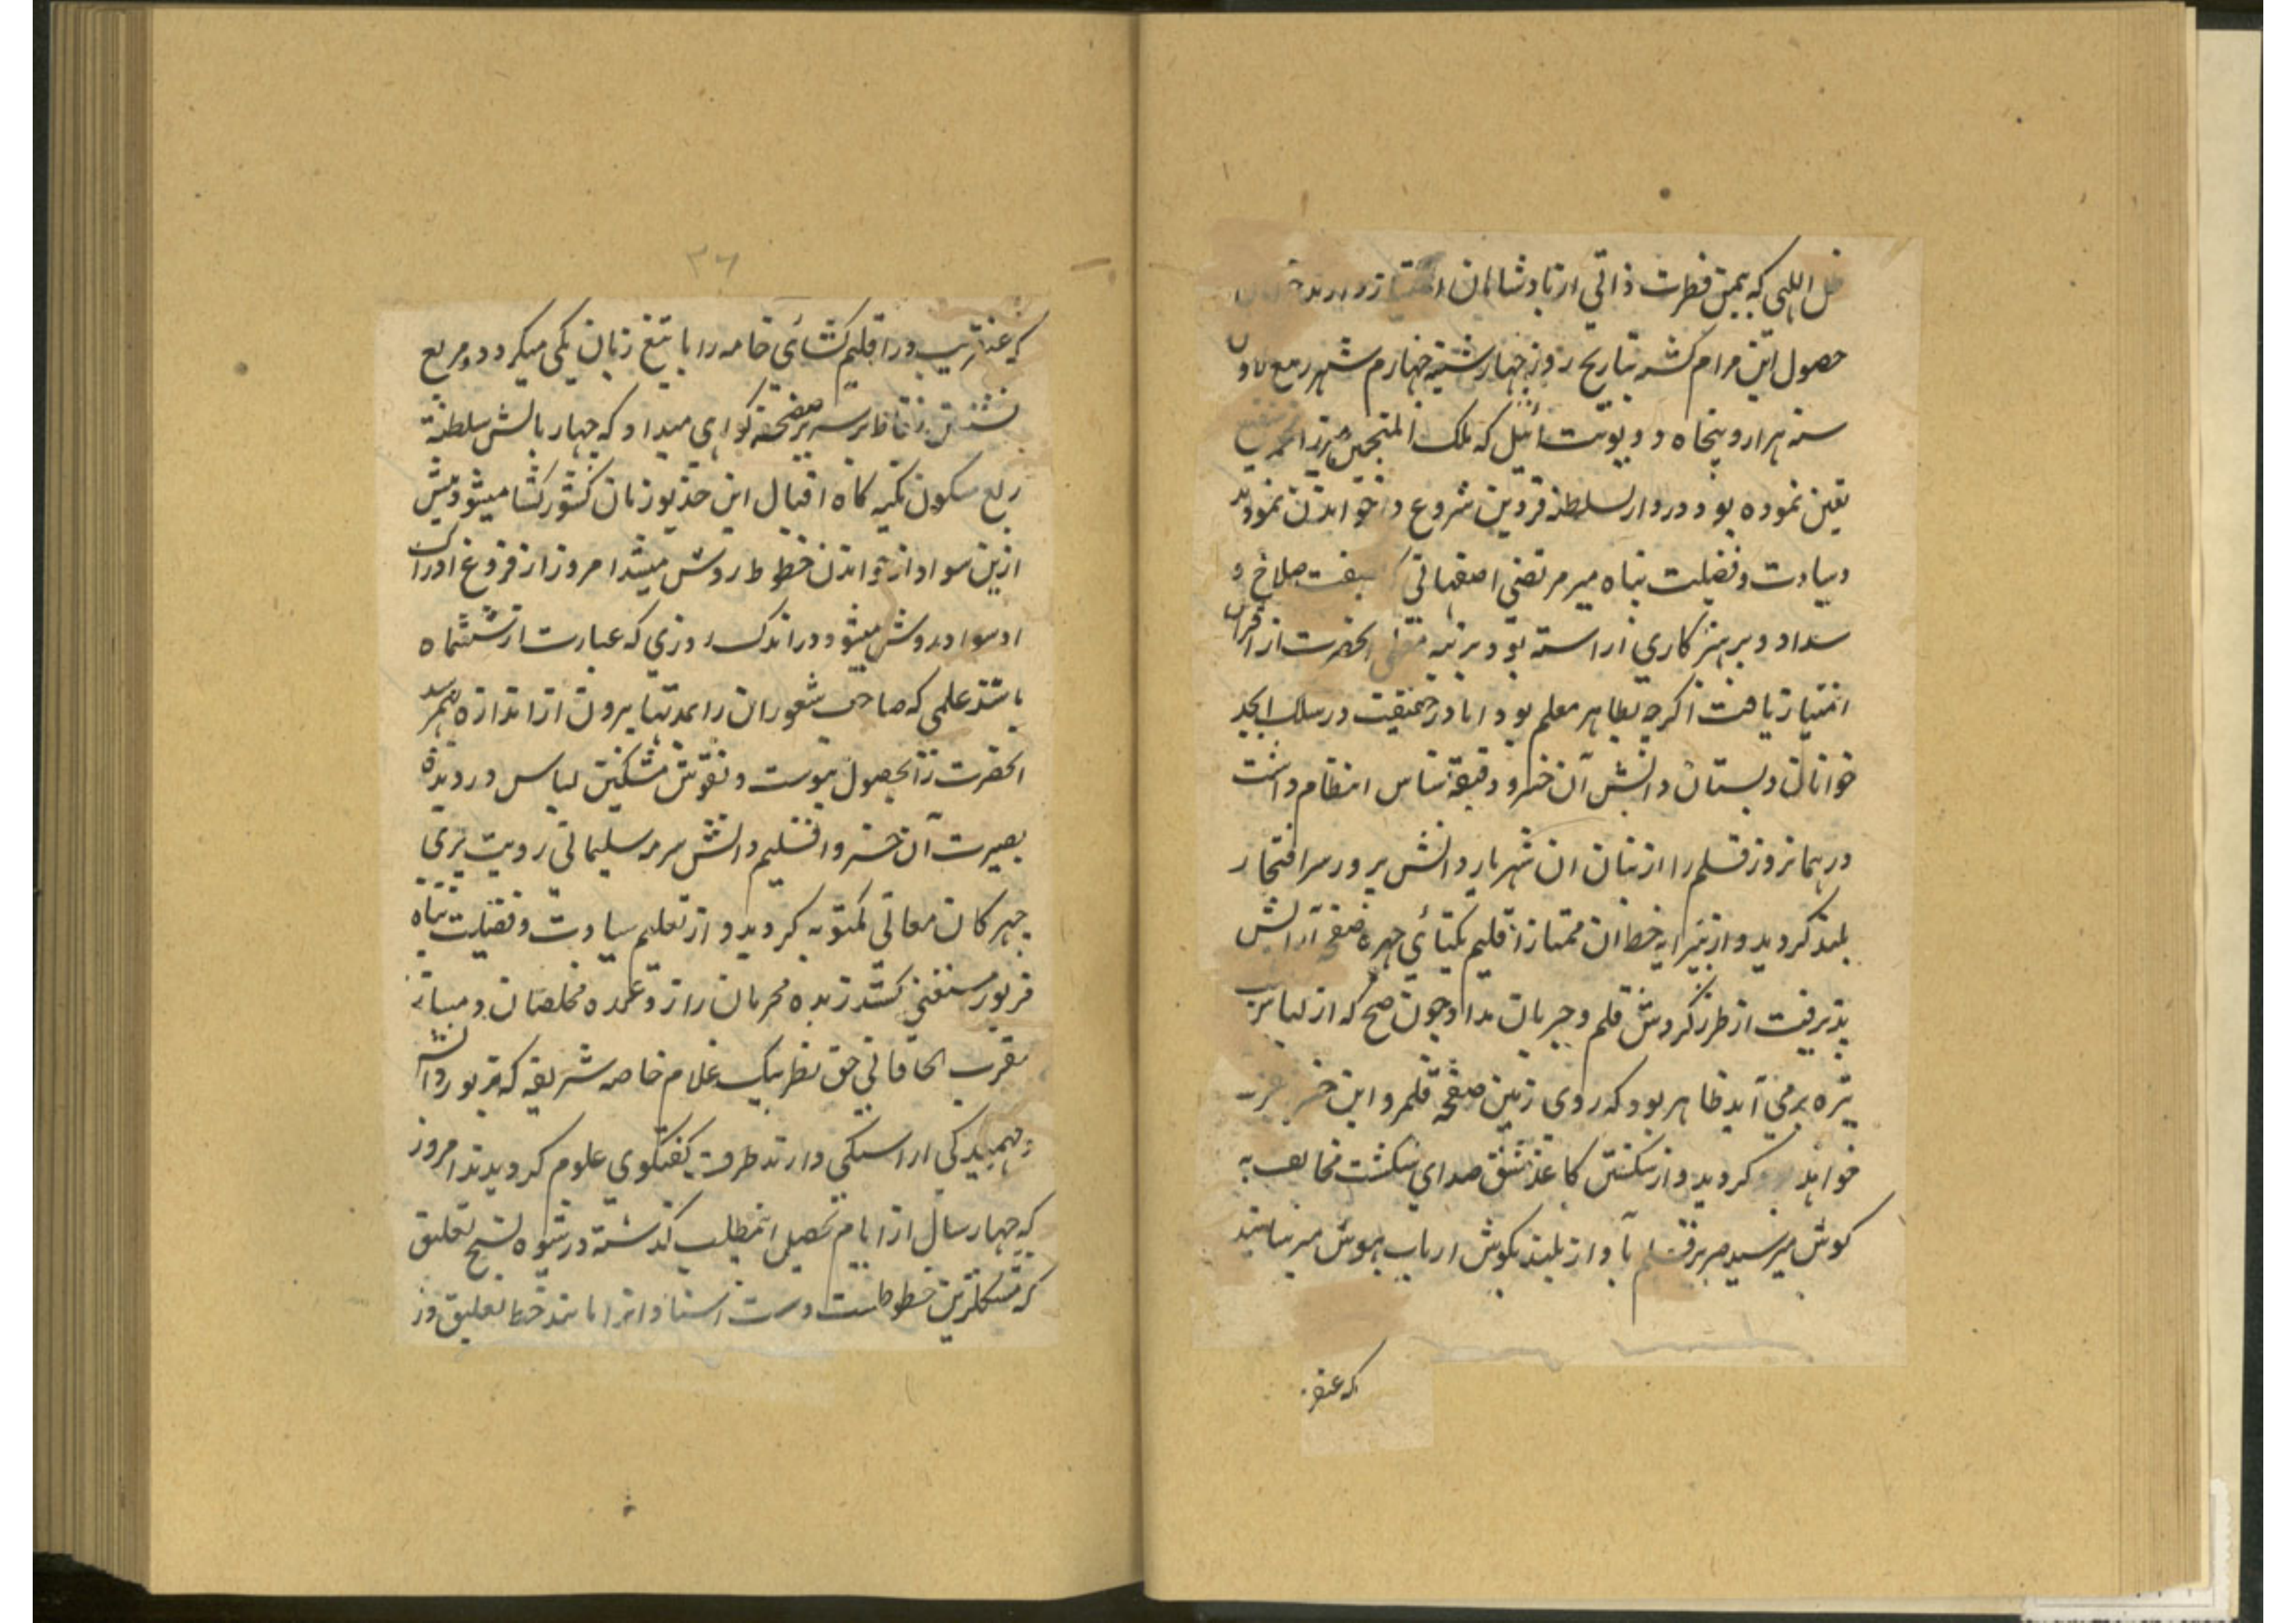 ظل اللهی که بیمن فطرت ذاتی از پادشاهان امتیاز دارند
حصول این مرام کشته بتاریخ روز چهارشنبه چهارم شهر ربیع الاول
سنه هزار و پنجاه و دو یونت ئیل که ملک المنجمین میرزا محمد شفیع
تعین نموده بود در دار السلطنه قزوین شروع در خواندن نمودند
و سیادت و فضیلت پناه میر مرتضی اصفهانی که بصفت صلاح و
سداد و پرهیزکاری آراسته بود برتبه معلمی آنحضرت از اقران
امتیاز یافت اگرچه بظاهر معلم بود اما در حقیقت در سلک ابجد
خوانان دبستان دانش آن خسرو دقیقه شناس انتظام داشت
در همانروز قلم را از بنان آن شهریار دانش پرور سر افتخار
بلند کردید و از پیرایه خط آن ممتاز اقلیم یکتائی چهره صفحه آرایش
پذیرفت از طرز کردش قلم و جریان مداد چون صبح که از لباس شب
تیره برمی آید ظاهر بود که روی زمین صفحه قلمرو این خسرو
خواهد کردید و از شکستن کاغذ مشق صدای شکست مخالف به
کوش میرسید صریر قلم بآواز بلند بکوش ارباب هوش میرسانید
که عنقر
۳۶
که عنقریب در اقلیم کشائی خامه را با تیغ زبان یکی میکردد و مربع
نشستن نقاط بر سریر صفحه کواهی میداد که چهار بالش سلطنة
ربع مسکون تکیه کاه اقبال این خدیو زمان کشور کشا میشود پیش
ازین سواد از خواندن خطوط روشن میشد امروز از فروغ ادراک
او سواد روشن میشود در اندک روزی که عبارت از ششماه
باشد علمی که صاحب شعوران را بمدتها بیرون از اندازه بهم رسد
آنحضرت را بحصول پیوست و نقوش مشکین لباس در دیدۀ
بصیرت آن خسرو اقلیم دانش سرمه سلیمانی رویت پری
چهرکان معانی مکتوبه کردید و از تعلیم سیادت و فضیلت پناه
مزبور مستغنی کشته زبده محرمان راز و عمده مخلصان
مقرب الخاقانی حق نظر بیک غلام خاصه شریفه که بزیور دانش
و فهمیدکی آراستکی دارند طرف کفتکوی علوم کردیدند امروز
که چهار سال از ایام تحصیل آنمطلب کذشته در شیوه نسخ تعلیق
که مشکلترین خطوطست دست استادانرا مانند خط تعلیق